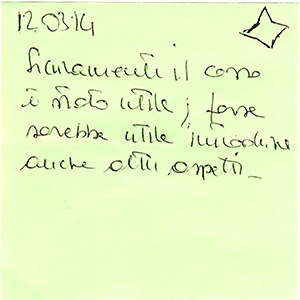 12.03.14
Sicuramente il corso
è stato utile; forse
sarebbe utile introdurre
anche altri aspetti_